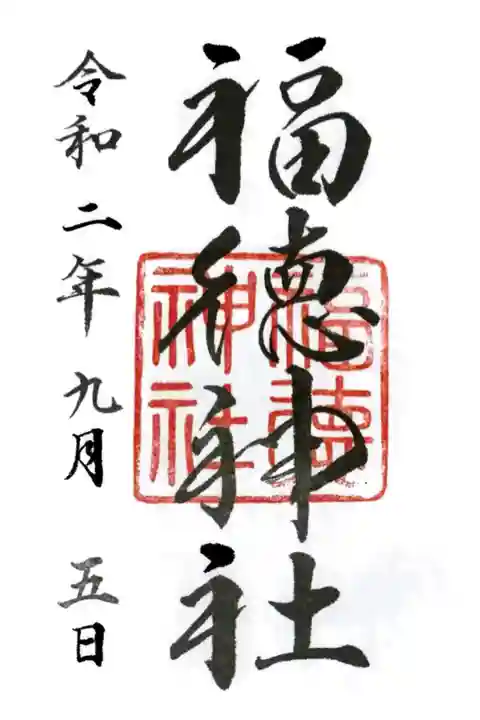 福徳神社
福徳
神社
令和二年九月五日